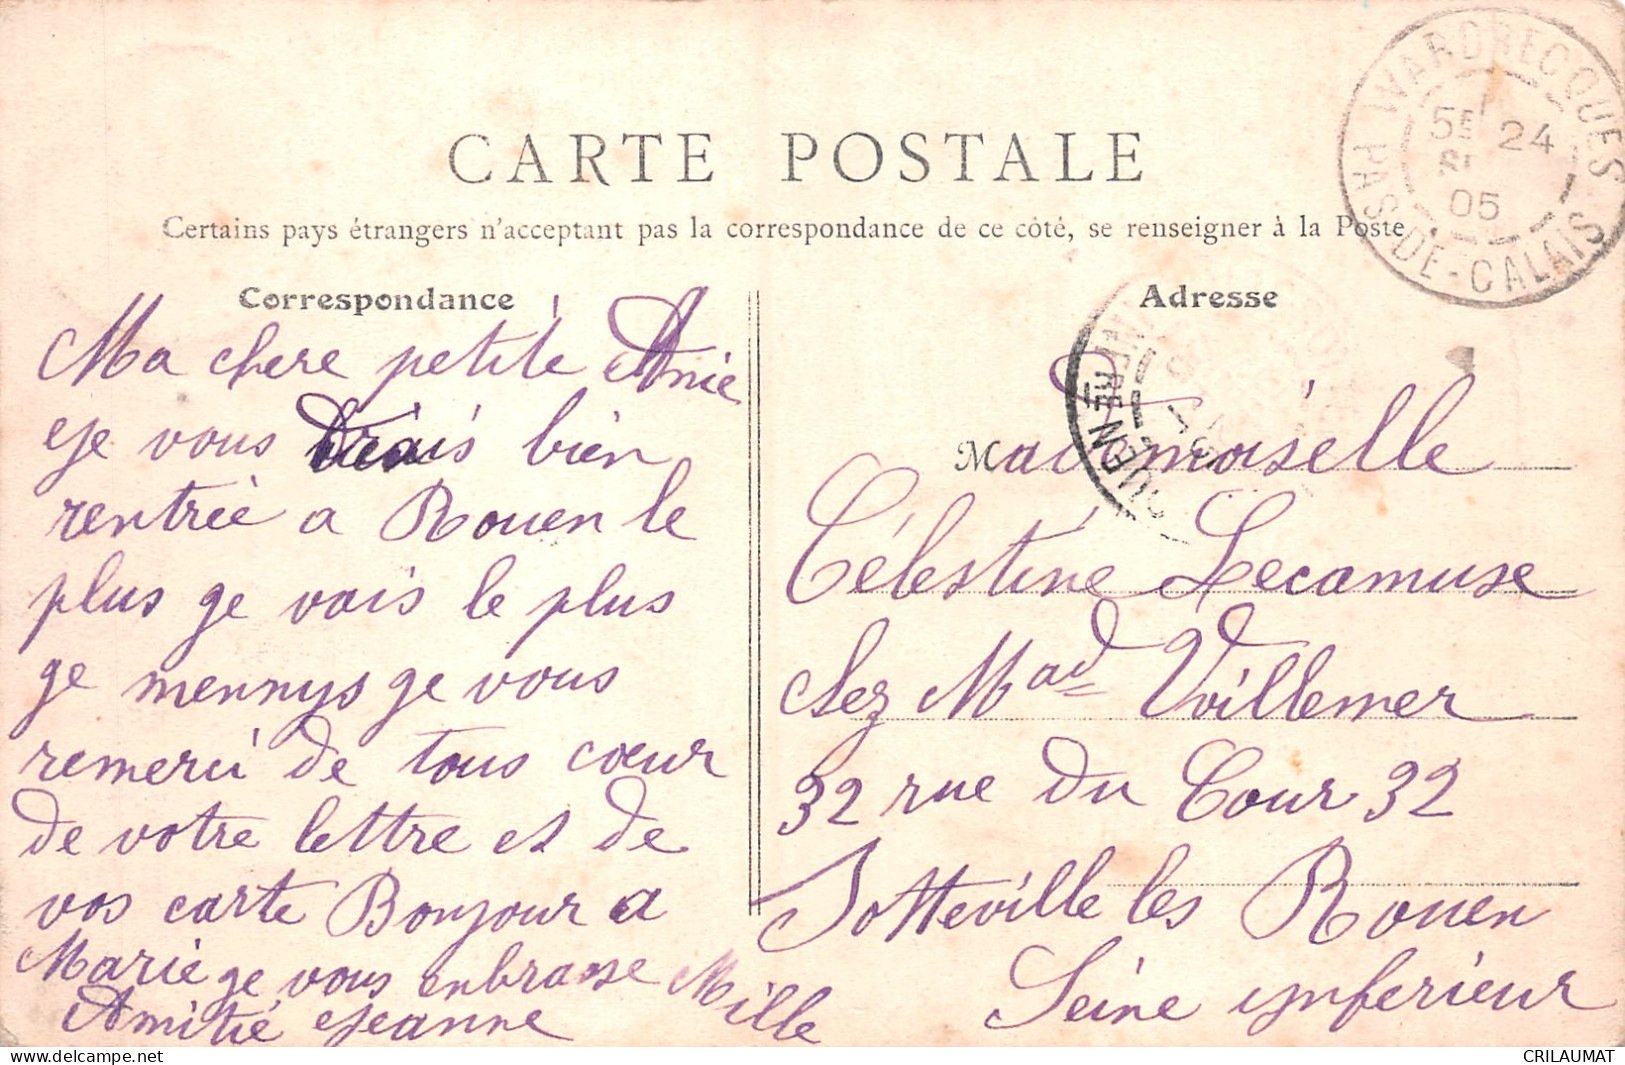 CARTE POSTALE
Certains pays étrangers n'acceptent pas la correspondance de ce côté, se renseigner à la Poste
WARDRECQUES
24
SE
05
PAS-DE-CALAIS
Correspondance
Ma chere petite Anie
je vous bien
rentrée a Rouen le
plus ge vais le plus
ge mennys ge vous
remerci de tous cœur
de votre lettre et de
vos carte Bonjour a
Marie ge vous enbrasse Mille
Amitié Jeanne
Adresse
Mademoiselle
Célestine Lecamuse
chez Mad Villemer
32 rue du Cour 32
Sotteville les Rouen
Seine ynferieur
CRILAUMAT